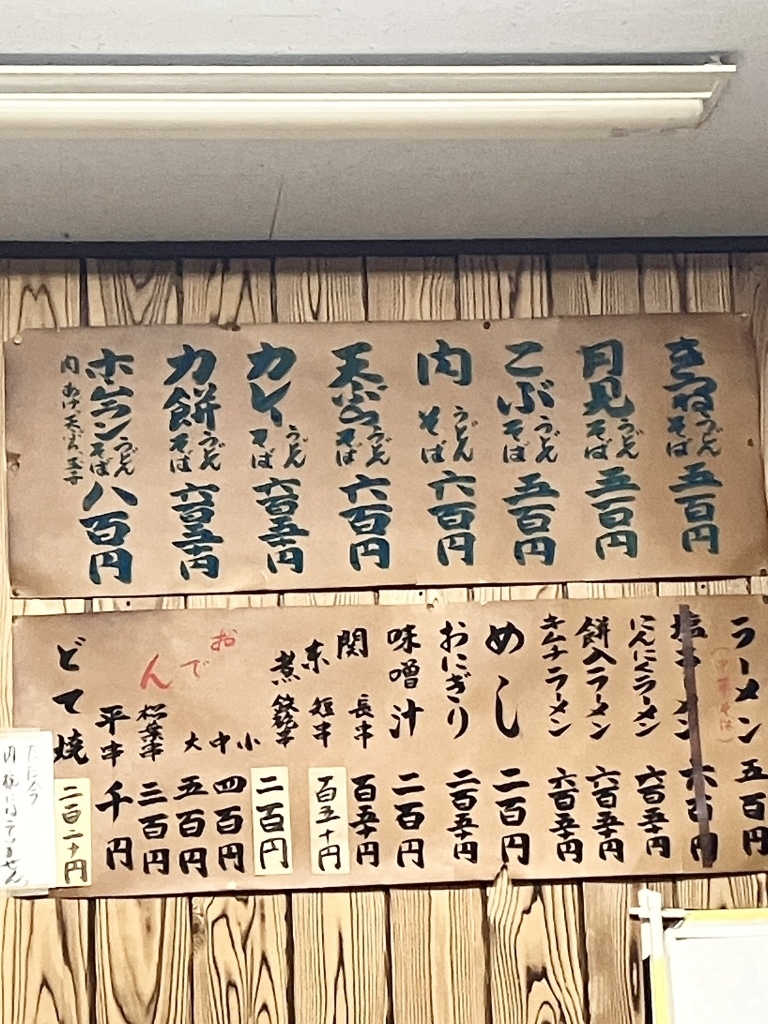 きつね うどん そば 五百円
月見 うどん そば 五百円
こぶ うどん そば 五百円
肉 うどん そば 六百円
天ぷら うどん そば 六百円
カレー うどん そば 六百五十円
力餅 うどん そば 六百五十円
ホームラン うどん そば 八百円
肉 あげ 天ぷら 玉子
ラーメン (中華そば) 五百円
塩ラーメン 六百円
にんにくラーメン 六百五十円
餅入ラーメン 六百五十円
キムチラーメン 六百五十円
めし 二百円
おにぎり 二百五十円
味噌汁 二百円
おでん
関 長串 百五十円
東 短串 百五十円
煮 二百円
小 中 四百円
大 五百円
松葉串 三百円
平串 千円
どて焼 二百二十円